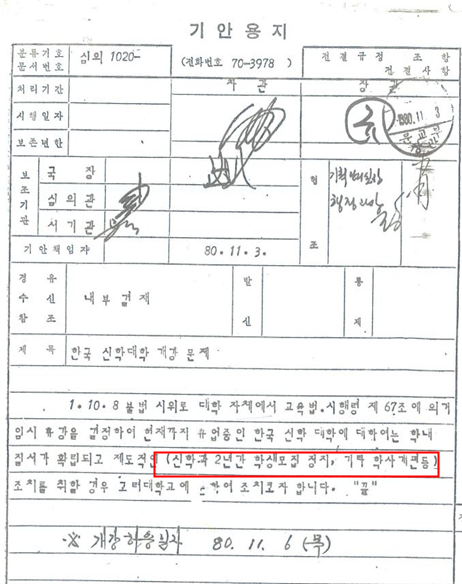 기안용지
분류기호
문서번호
심의 1020-
(전화번호 70-3978 )
전결규정 조 항
전결사항
처리기간
차 관
장 관
시행일자
1980.11 3
보존년한
보조기관
국 장
심의관
서기관
협조
기획관리실장
기안책임자
80.11.3.
경유
수신
참조
내부결재
발신
통제
제 목
한국 신학대학 개강 문제
1.10.8 불법 시위로 대학 자체에서 교육법.시행령 제 67조에 의거
임시 휴강을 결정하여 현재까지 휴업중인 한국 신학 대학에 대하여는 학내
질서가 확립되고 제도적인 (신학과 2년간 학생모집 정지, 기타 학사개편등)
조치를 취할 경우 조치코자 합니다. "끝"
※ 개강허용일자 80. 11. 6 (목)